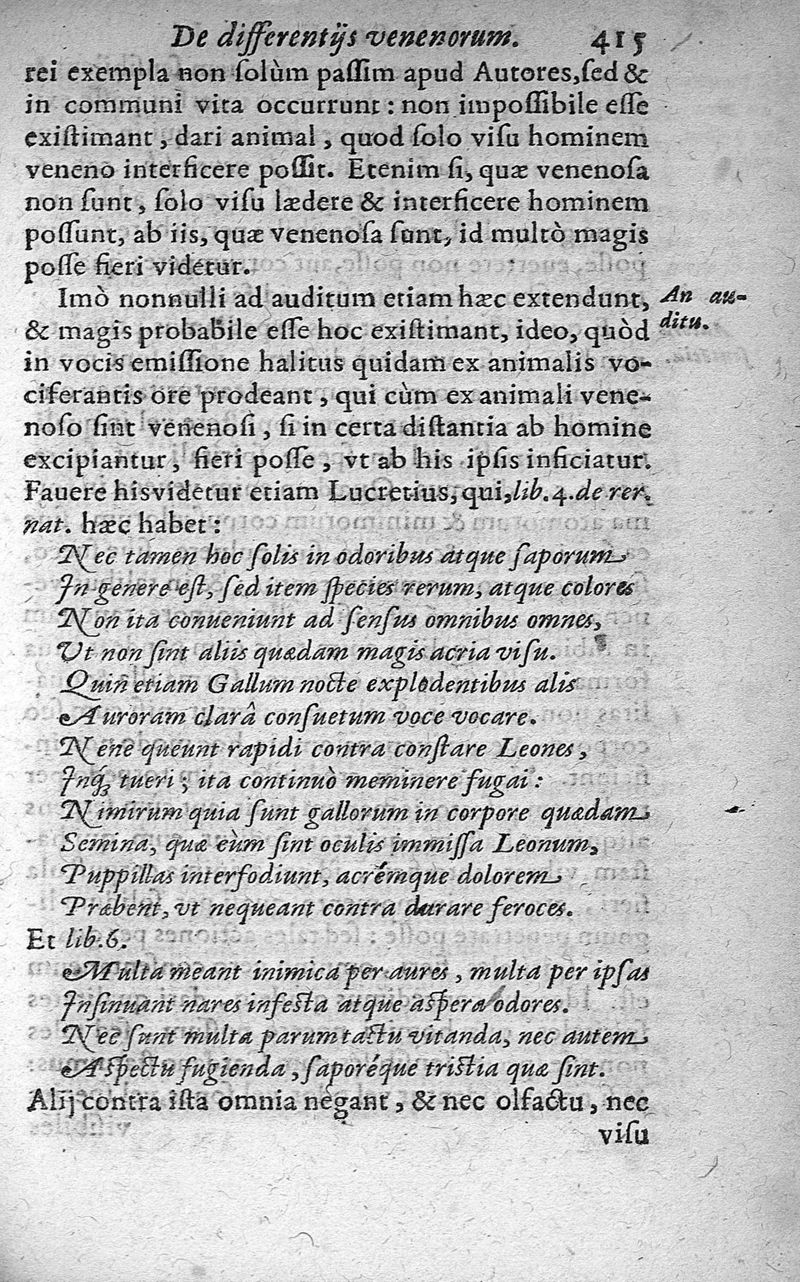 De differentijs venenorum. 415
rei exempla non ſolùm paſſim apud Autores, ſed &
in communi vita occurrunt : non impoſſibile eſſe
exiſtimant, dari animal, quod ſolo viſu hominem
veneno interficere poſſit. Etenim ſi, quæ venenoſa
non ſunt, ſolo viſu lædere & interficere hominem
poſſunt, ab iis, quæ venenoſa ſunt, id multò magis
poſſe fieri videtur.
Imò nonnulli ad auditum etiam hæc extendunt,
An au-
ditu.
& magis probabile eſſe hoc exiſtimant, ideo, quòd
in vocis emiſſione halitus quidam ex animalis vo-
ciferantis ore prodeant, qui cùm ex animali vene-
noſo ſint venenoſi, ſi in certa diſtantia ab homine
excipiantur, fieri poſſe, vt ab his ipſis inficiatur.
Fauere his videtur etiam Lucretius, qui, lib. 4. de rer.
nat. hæc habet :
Nec tamen hoc ſolis in odoribus atque ſaporum
In genere eſt, ſed item ſpecies rerum, atque colores
Non ita conueniunt ad ſenſus omnibus omnes,
Vt non ſint aliis quædam magis acria viſu.
Quin etiam Gallum nocte explodentibus alis
Auroram clarâ conſuetum voce vocare.
Nene queunt rapidi contra conſtare Leones,
Inq́ꝫ tueri ; ita continuò meminere fugai :
Nimirum quia ſunt gallorum in corpore quædam
Semina, quæ eùm ſint oculis immiſſa Leonum,
Puppillas interfodiunt, acrémque dolorem
Præbent, vt nequeant contra durare feroces.
Et lib. 6.
Multa meant inimica per aures, multa per ipſas
Inſinuant nares infeſta atque aſpera odores.
Nec ſunt multa parum tactu vitanda, nec autem
Aſpectu fugienda, ſaporéque triſtia quæ ſint.
Alij contra iſta omnia negant, & nec olfactu, nec
viſu